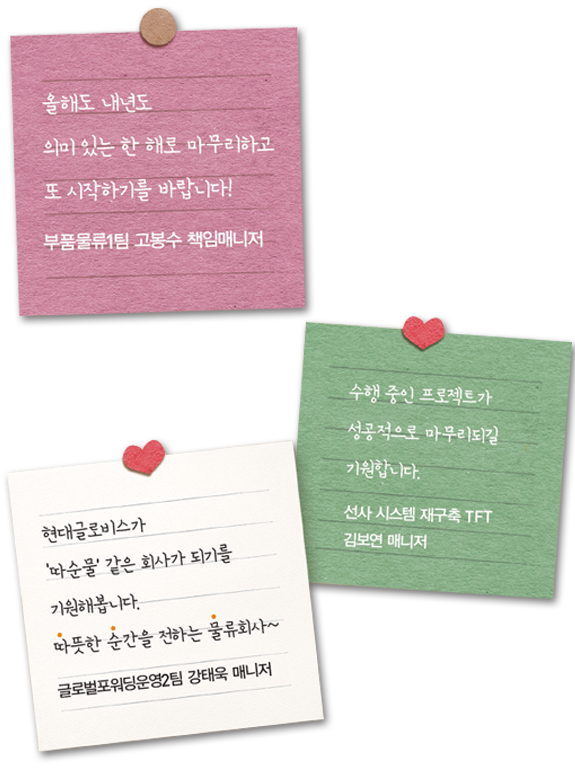 올해도 내년도
의미 있는 한 해로 마무리하고
또 시작하기를 바랍니다!
부품물류1팀 고봉수 책임매니저
수행 중인 프로젝트가
성공적으로 마무리되길
기원합니다.
선사 시스템 재구축 TFT
김보연 매니저
현대글로비스가
'따순물' 같은 회사가 되기를
기원해봅니다.
따뜻한 순간을 전하는 물류회사~
글로벌포워딩운영2팀 강태욱 매니저